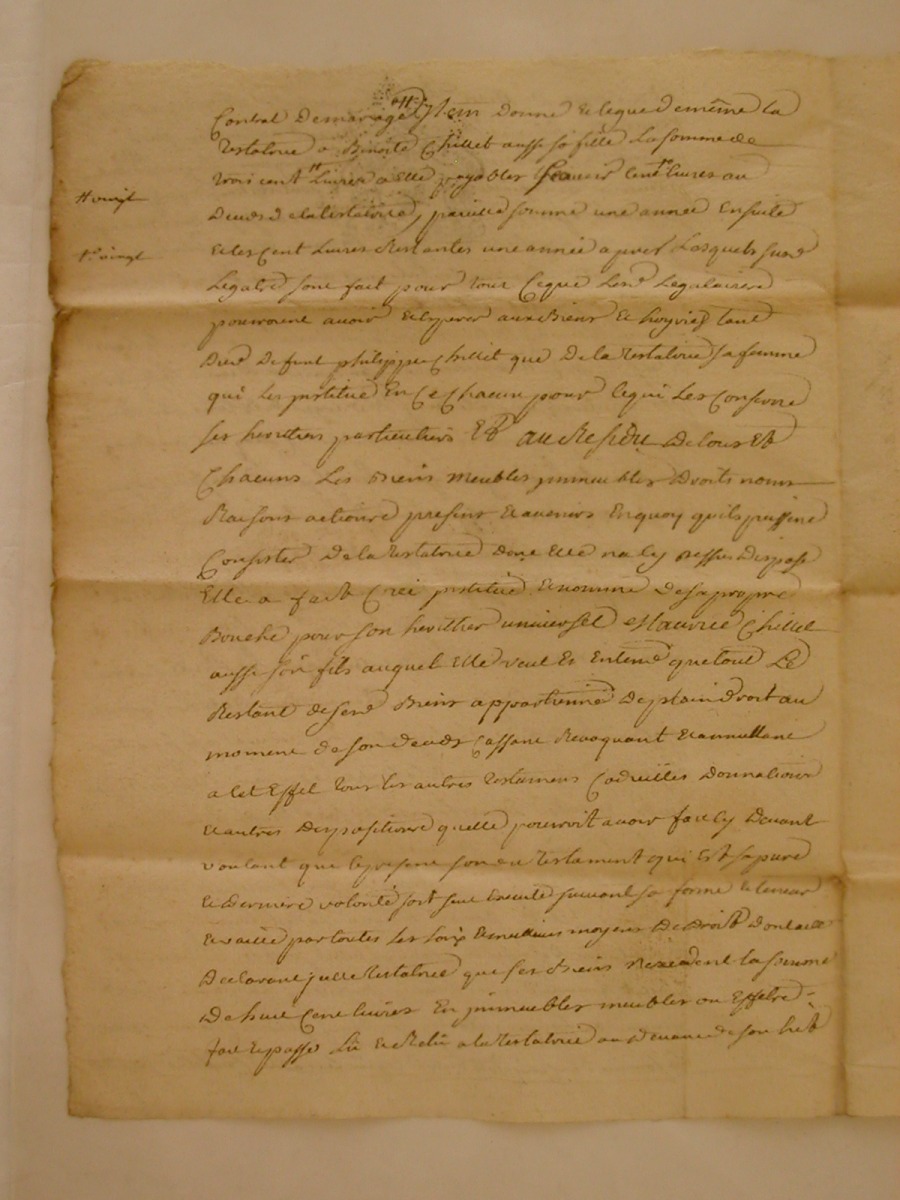 Contrat de mariage Item donne et legue de meme la
testatrice a Benoite Chillet aussy sa fille la somme de
trois cent livres a elle payables scavoir cent livres au
# vingt
deceds de la testatrice, pareille somme une annee Ensuite
vingt
et les Cent Livres Restantes une année apres Lesquels susd
Legats sont fait pour tout Ceque Lesd Legataires
pourroient avoir et esperer aux Biens et hoyries tant
dud defunt philippe Chillet que de la testatrice sa femme
qui Les institue En Ce Chacun pour Cequi Les Conserne
ses heritiers particuliers Et au Residu de tous Et
Chacuns Les Biens meubles immeubles droits noms
Raisons actions presents et avenirs En quoy quils puissent
Consister de la testatrice dont Elle na cy dessus disposé
Elle a fait Créé institué et nommé de sa propre
Bouche pour son heritier universel Maurice Chillet
aussy son fils auquel Elle veut Et Entend que tout Le
Restant de sesd Biens appartienne de plain droit au
moment de son deceds Cassant Revoquant et annullant
a Cet Effet tous les autres testaments Codicilles donnations
et autres dispositions quelle pourroit avoir fait cy devant
voulant que le present son du testament qui Est sa pure
et derniere volonté soit seul Executé suivant sa forme et teneur
et vaille par toutes Les Loix et meilleurs moyens de droit
declarant que ses Biens nexcedent la somme
de huit Cent livres En immeubles meubles ou Effets
fait et passé Lu et Relu a la testatrice au devant de son Lit